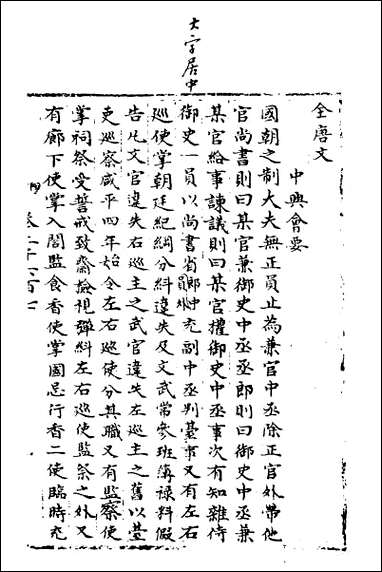 大字居中
全唐文
中興會要
國朝之制大夫無正員止為兼官中丞除正官外帶他
官尚書則曰某官兼御史中丞丞郎則曰御史中丞兼
某官給事諫議則曰某官權御史中丞事次有知雜侍
御史一員以尚書省郎中員外充副中丞判臺事又有左右
巡使掌朝廷紀綱分糾違失及文武常參班簿祿料假
告凡文官違失右巡主之武官違失左巡主之舊以臺
吏巡察咸平四年始令左右巡使分其職又有監察使
掌祠祭受誓戒致齋檢視彈糾左右巡使監祭之外又
有廊下使掌入閤監食香使掌國忌行香二使臨時充
卷二千六百七